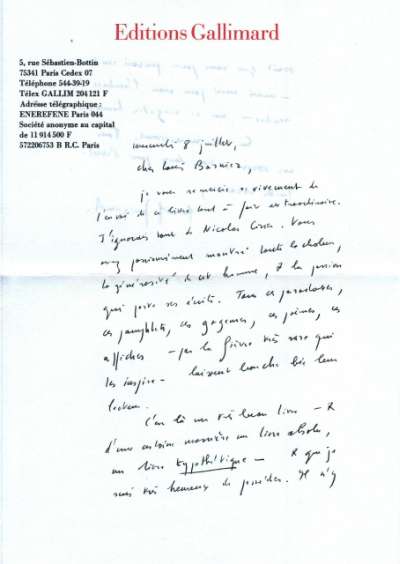 Editions Gallimard
5, rue Sébastien-Bottin
75341 Paris Cedex 07
Téléphone 544-39-19
Télex GALLIM 204121 F
Adresse télégraphique :
ENEREFENE Paris 044
Société anonyme au capital
de 11 914 500 F
572206753 B R.C. Paris
mercredi 8 juillet,
cher Louis
je vous remercie vivement de
l'envoi de ce livre tout à fait extraordinaire.
J'ignorais tout de Nicolas Vous
avez passionnément montré toute la chaleur,
la générosité de cet homme, & la passion
qui porte ses écrits. Tous ces paradoxes,
ces pamphlets, ces gageures, ces poèmes, ces
affiches — par la fièvre très rare qui
les inspire — laissent bouche bée leur
lecteur.
C'est là un très beau livre — &
d'une certaine manière un livre absolu,
un livre hypothétique — & que je
suis très heureux de posséder. Il n'y